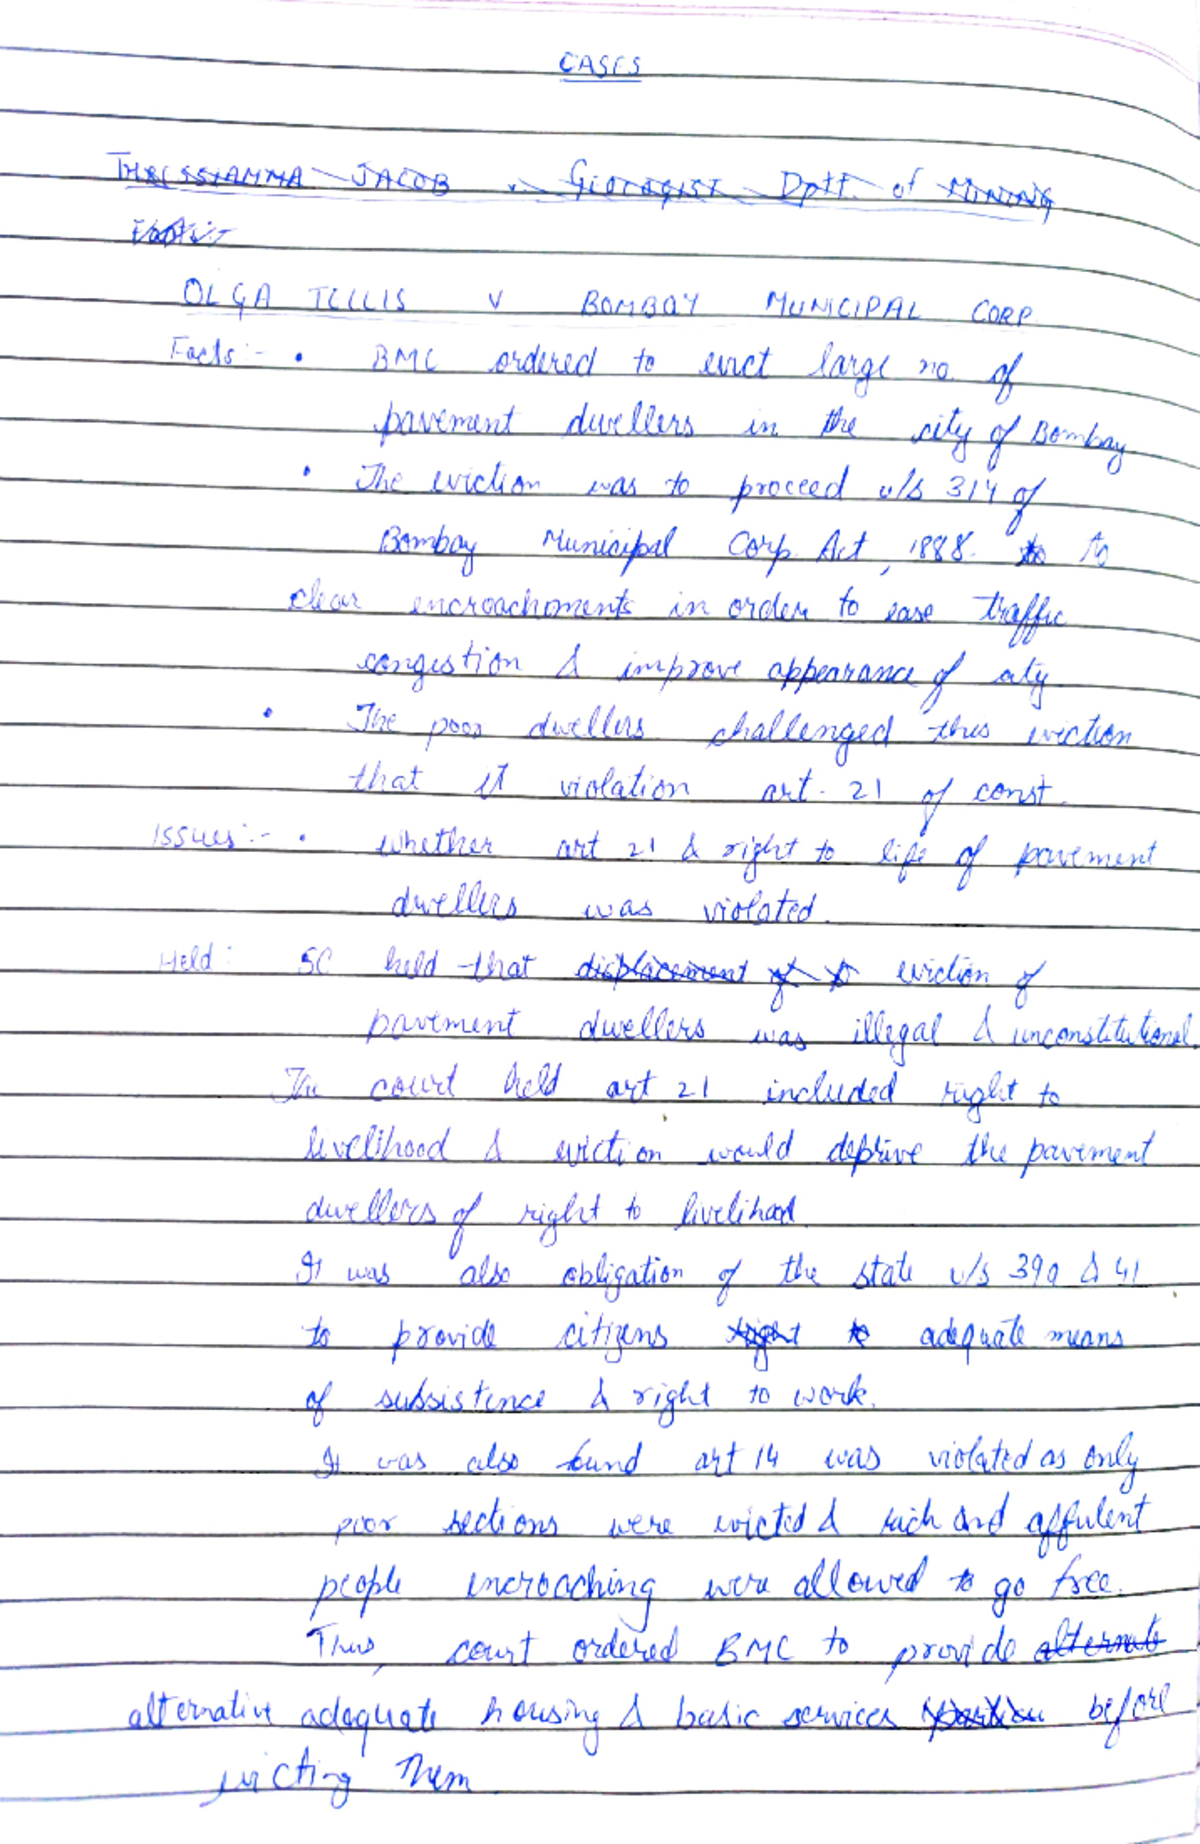 CASES
THRESSIAMMA JACOB v. Geologist Dptt. of MINING
Facts:-
OLGA TELLIS V BOMBAY MUNICIPAL CORP
Facts:- • BMC ordered to evict large no. of
pavement dwellers in the city of Bombay
• The eviction was to proceed u/s 314 of
Bombay Municipal Corp. Act, 1888. to to
clear encroachments in order to ease traffic
congestion & improve appearance of city
• The poor dwellers challenged this eviction
that it violation art. 21 of const.
Issues:- • whether art 21 & right to life of pavement
dwellers was violated.
Held: SC held that displacement of eviction of
pavement dwellers was illegal & unconstitutional.
The court held art 21 included right to
livelihood & eviction would deprive the pavement
dwellers of right to livelihood
It was also obligation of the state u/s 39a & 41
to provide citizens right to adequate means
of subsistence & right to work.
It was also found art 14 was violated as only
poor sections were evicted & rich and affulent
people encroaching were allowed to go free.
Thus, court ordered BMC to provide alternate
alternative adequate housing & basic services before
evicting them